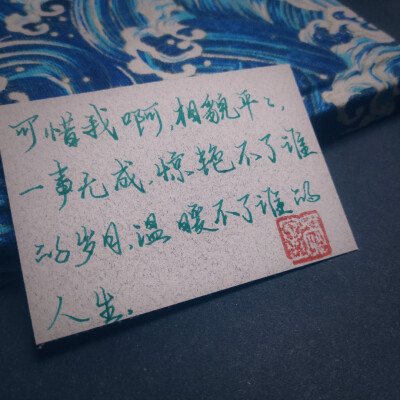 可惜我啊,相貌平々,
一事无成,惊艳不了谁
的岁月,温暖不了谁的
人生.